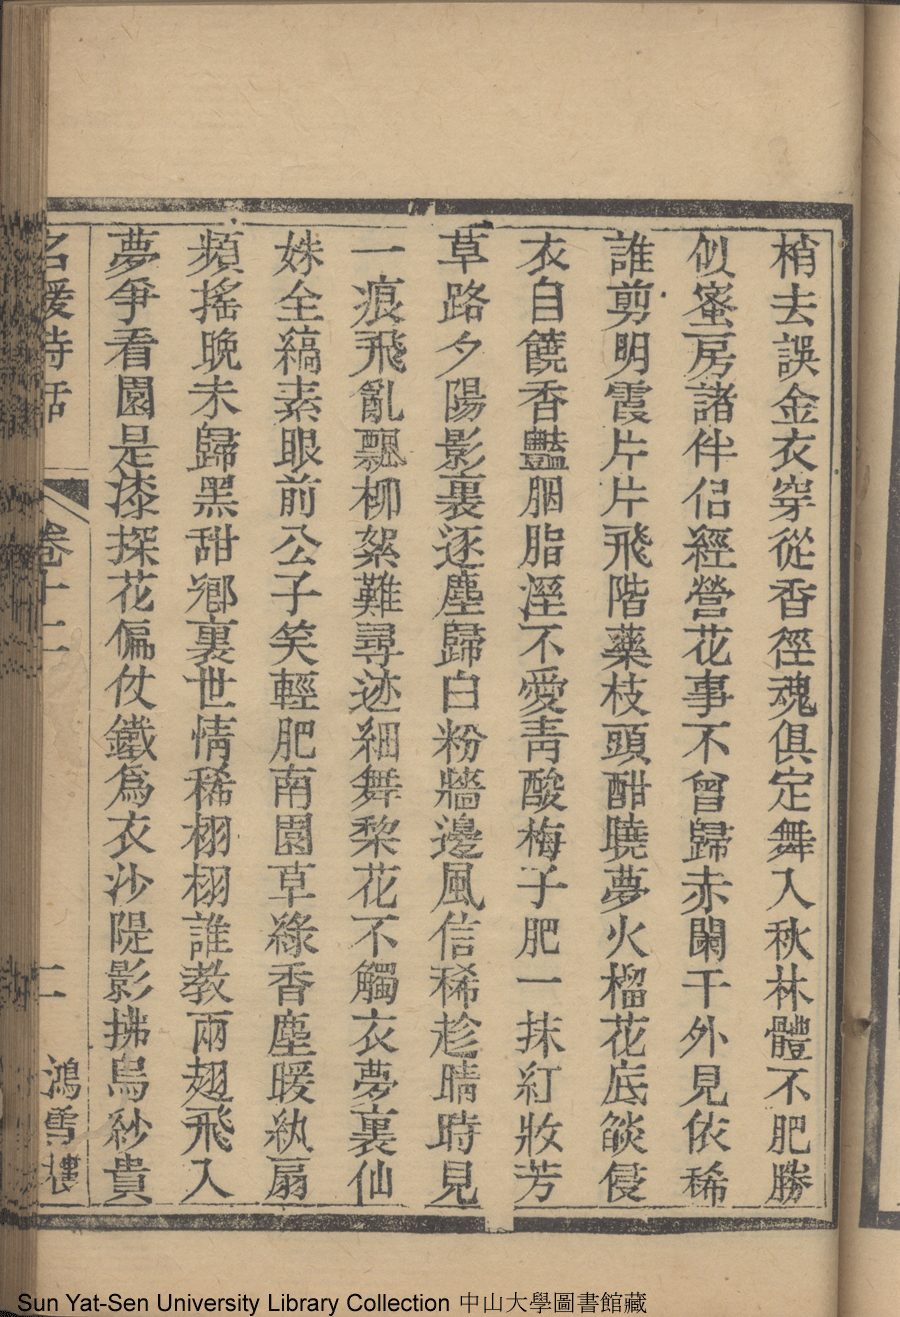 梢去誤金衣穿從香徑魂俱定舞入秋林體不肥勝
似蜜房諸伴侶經營花事不曾歸赤闌干外見依稀
誰剪明霞片片飛階藥枝頭酣曉夢火榴花底燄侵
衣自饒香豔胭脂溼不愛靑酸梅子肥一抹紅妝芳
草路夕陽影裏逐塵歸白粉牆邊風信稀趁晴時見
一痕飛亂飄柳絮難尋迹細舞棃花不觸衣夢裏仙
姝全縞素眼前公子笑輕肥南園草綠香塵暖紈扇
頻搖晚未歸黑甜鄉裏世情稀栩栩誰教兩翅飛入
夢爭看園是漆探花偏仗鐵爲衣沙隄影拂烏紗貴
名媛詩話
卷十二
二
鴻雪樓
Sun Yat-Sen University Library Collection 中山大學圖書館藏